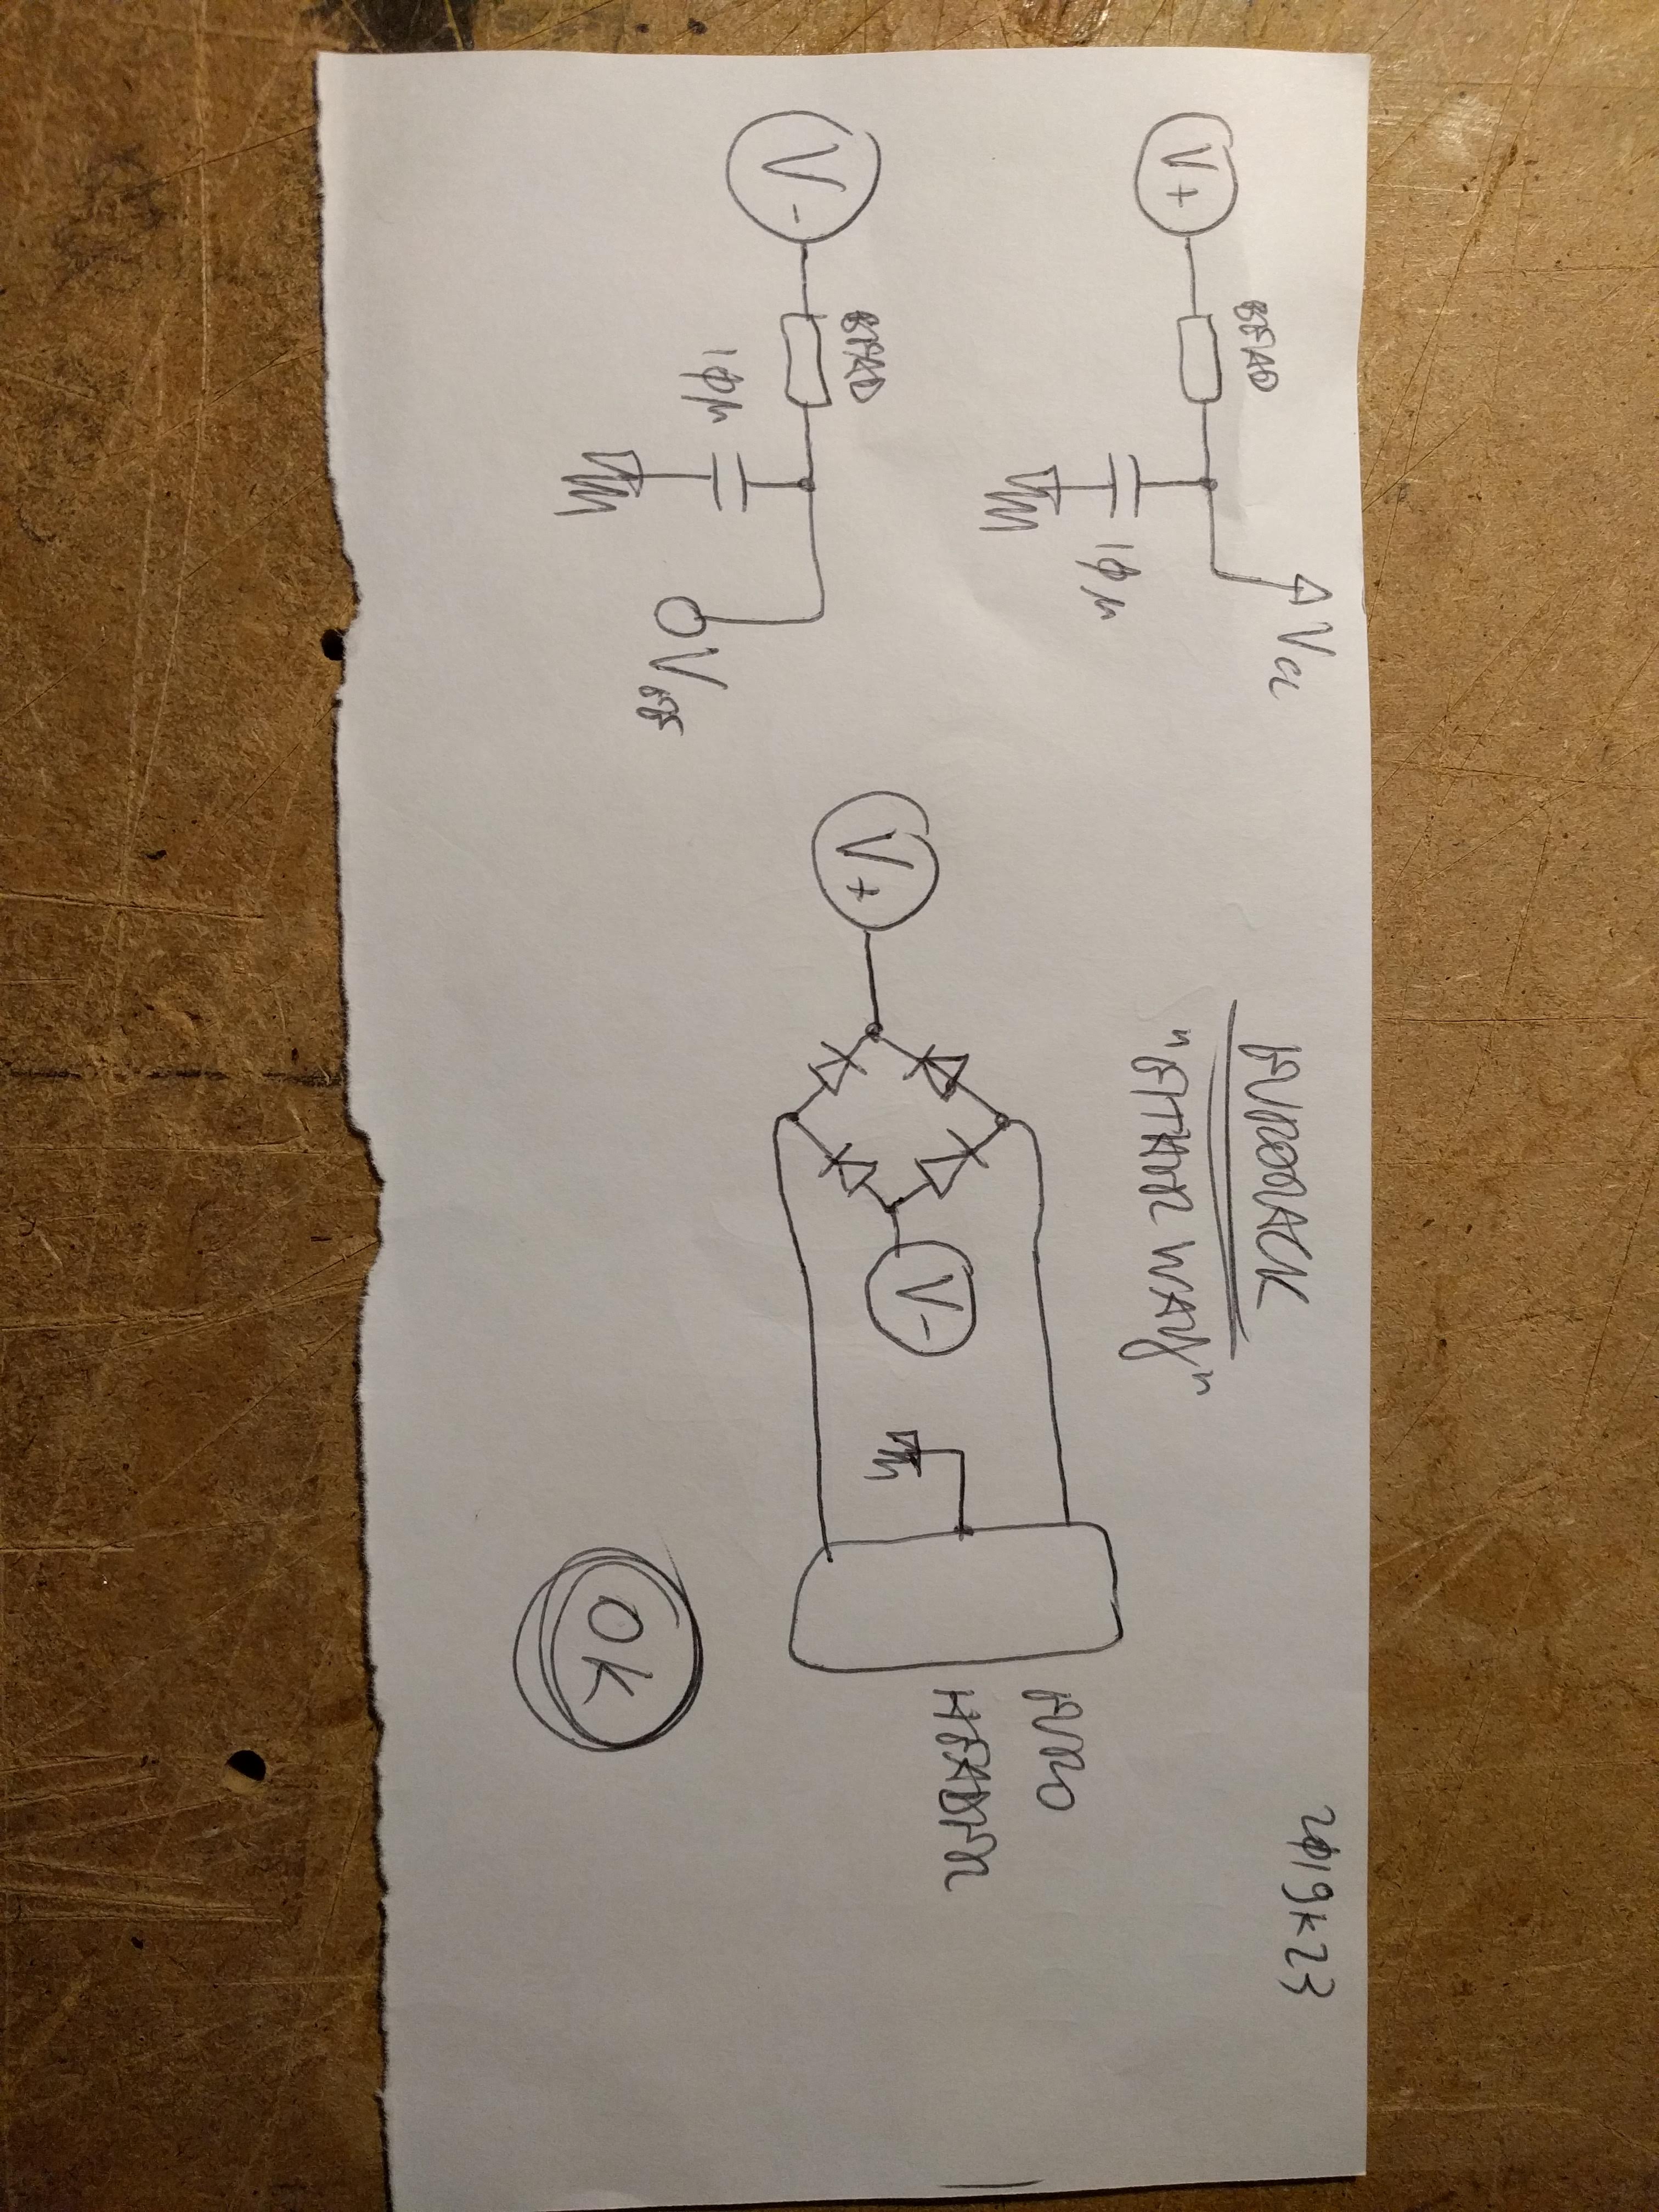 2019K23
EURORACK
"EITHER WAY"
V+
BEAD
VCC
10µ
V-
BEAD
10µ
VEE
V+
V-
EURO
HEADER
OK